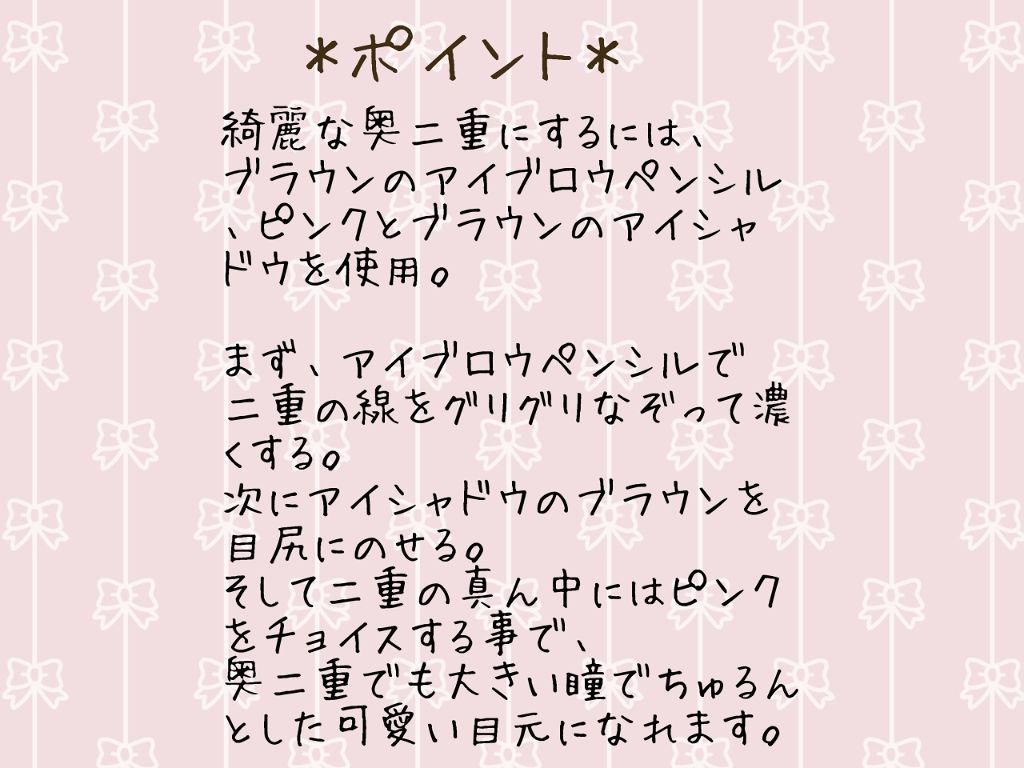 *ポイント*
綺麗な奥二重にするには、
ブラウンのアイブロウペンシル
、ピンクとブラウンのアイシャ
ドウを使用。
まず、アイブロウペンシルで
二重の線をグリグリなぞって濃
くする。
次にアイシャドウのブラウンを
目尻にのせる。
そして二重の真ん中にはピンク
をチョイスする事で、
奥二重でも大きい瞳でちゅるん
とした可愛い目元になれます。